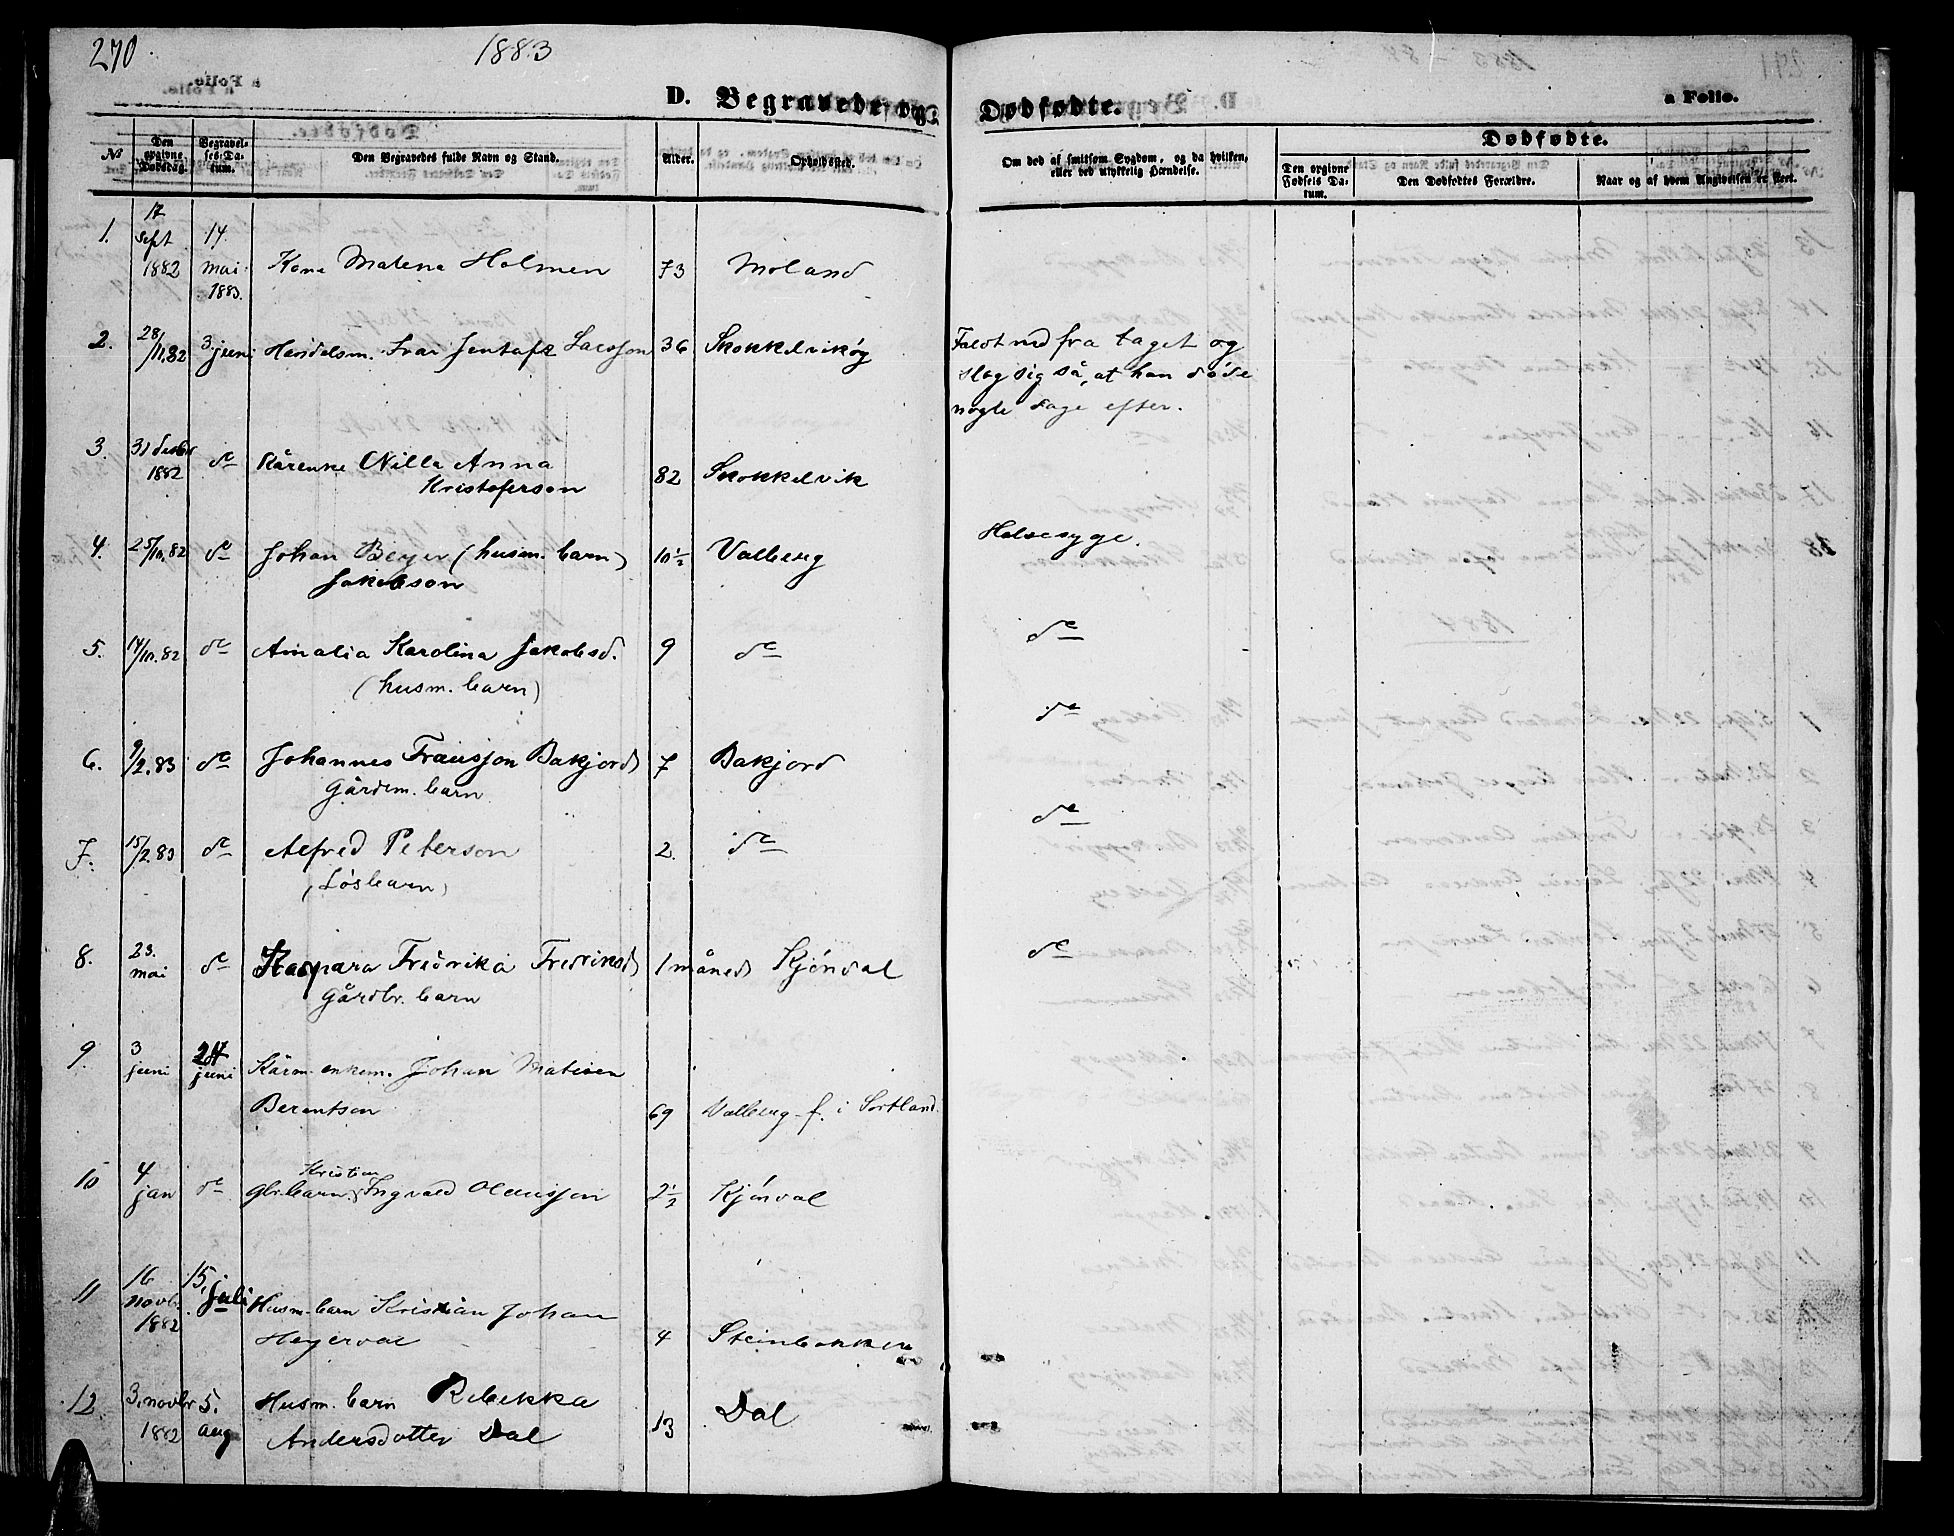 270
1883
a Folio.
D. Begravede og Dødfødte.
a Folio.
№
Den opgivne Dødsdag.
Begravelses-Datum.
Den Begravedes fulde Navn og Stand.
Alder.
Opholdssted.
Om død af smitsom Sygdom, og da hvilken, eller ved ulykkelig Hændelse.
Dødfødte.
Den opgivne Fødsels Datum.
Den Dødfødtes Forældre.
Naar og af hvem Angivelsen er skeet.
1. 17 sept 1882 14. mai 1883. Kone Malena Holmen 73 Moland
2. 28/11.82 3. juni Handelsm. Ivar Larsson 36 Skokkelvikøy
Faldt ned fra taget og
slog sig så, at han døde
nogle dage efter.
3. 31 desbr 1882 do Kårenke Nilla Anna
Kristoferson 82 Skokkelvik
4. 25/10.82 do Johan Beyer (husm. barn)
Jakobson 10½ Valberg Halsesyge.
5. 14/10.82 do Amalia Karolina Jakobsd. 9 do do
(husm. barn)
6. 9/2.83 do Johannes Fransson Bakjord 7 Bakjord do
Gårdm. barn
7. 15/2.83 do Alfred Peterson 2. do do
(Løsbarn)
8. 23. mai do Kaspara Fredrika Fredriksd 1 måned Kjøndal do
Gårdbr. barn
9. 3 juni 24 juni Kårm. enkem. Johan Matisen
Berentsen 69 Valberg f. i Sortland.
Kristian
10 4 jan do Gbr. barn Ingvald Olausson 2½ Kjøndal
11 16 novbr. 1882 15. juli Husm. barn Kristian Johan
4 Steinbakken
12. 3. novbr 1882 5. aug Husm. barn Rebekka
Andersdotter Dal 13 Dal